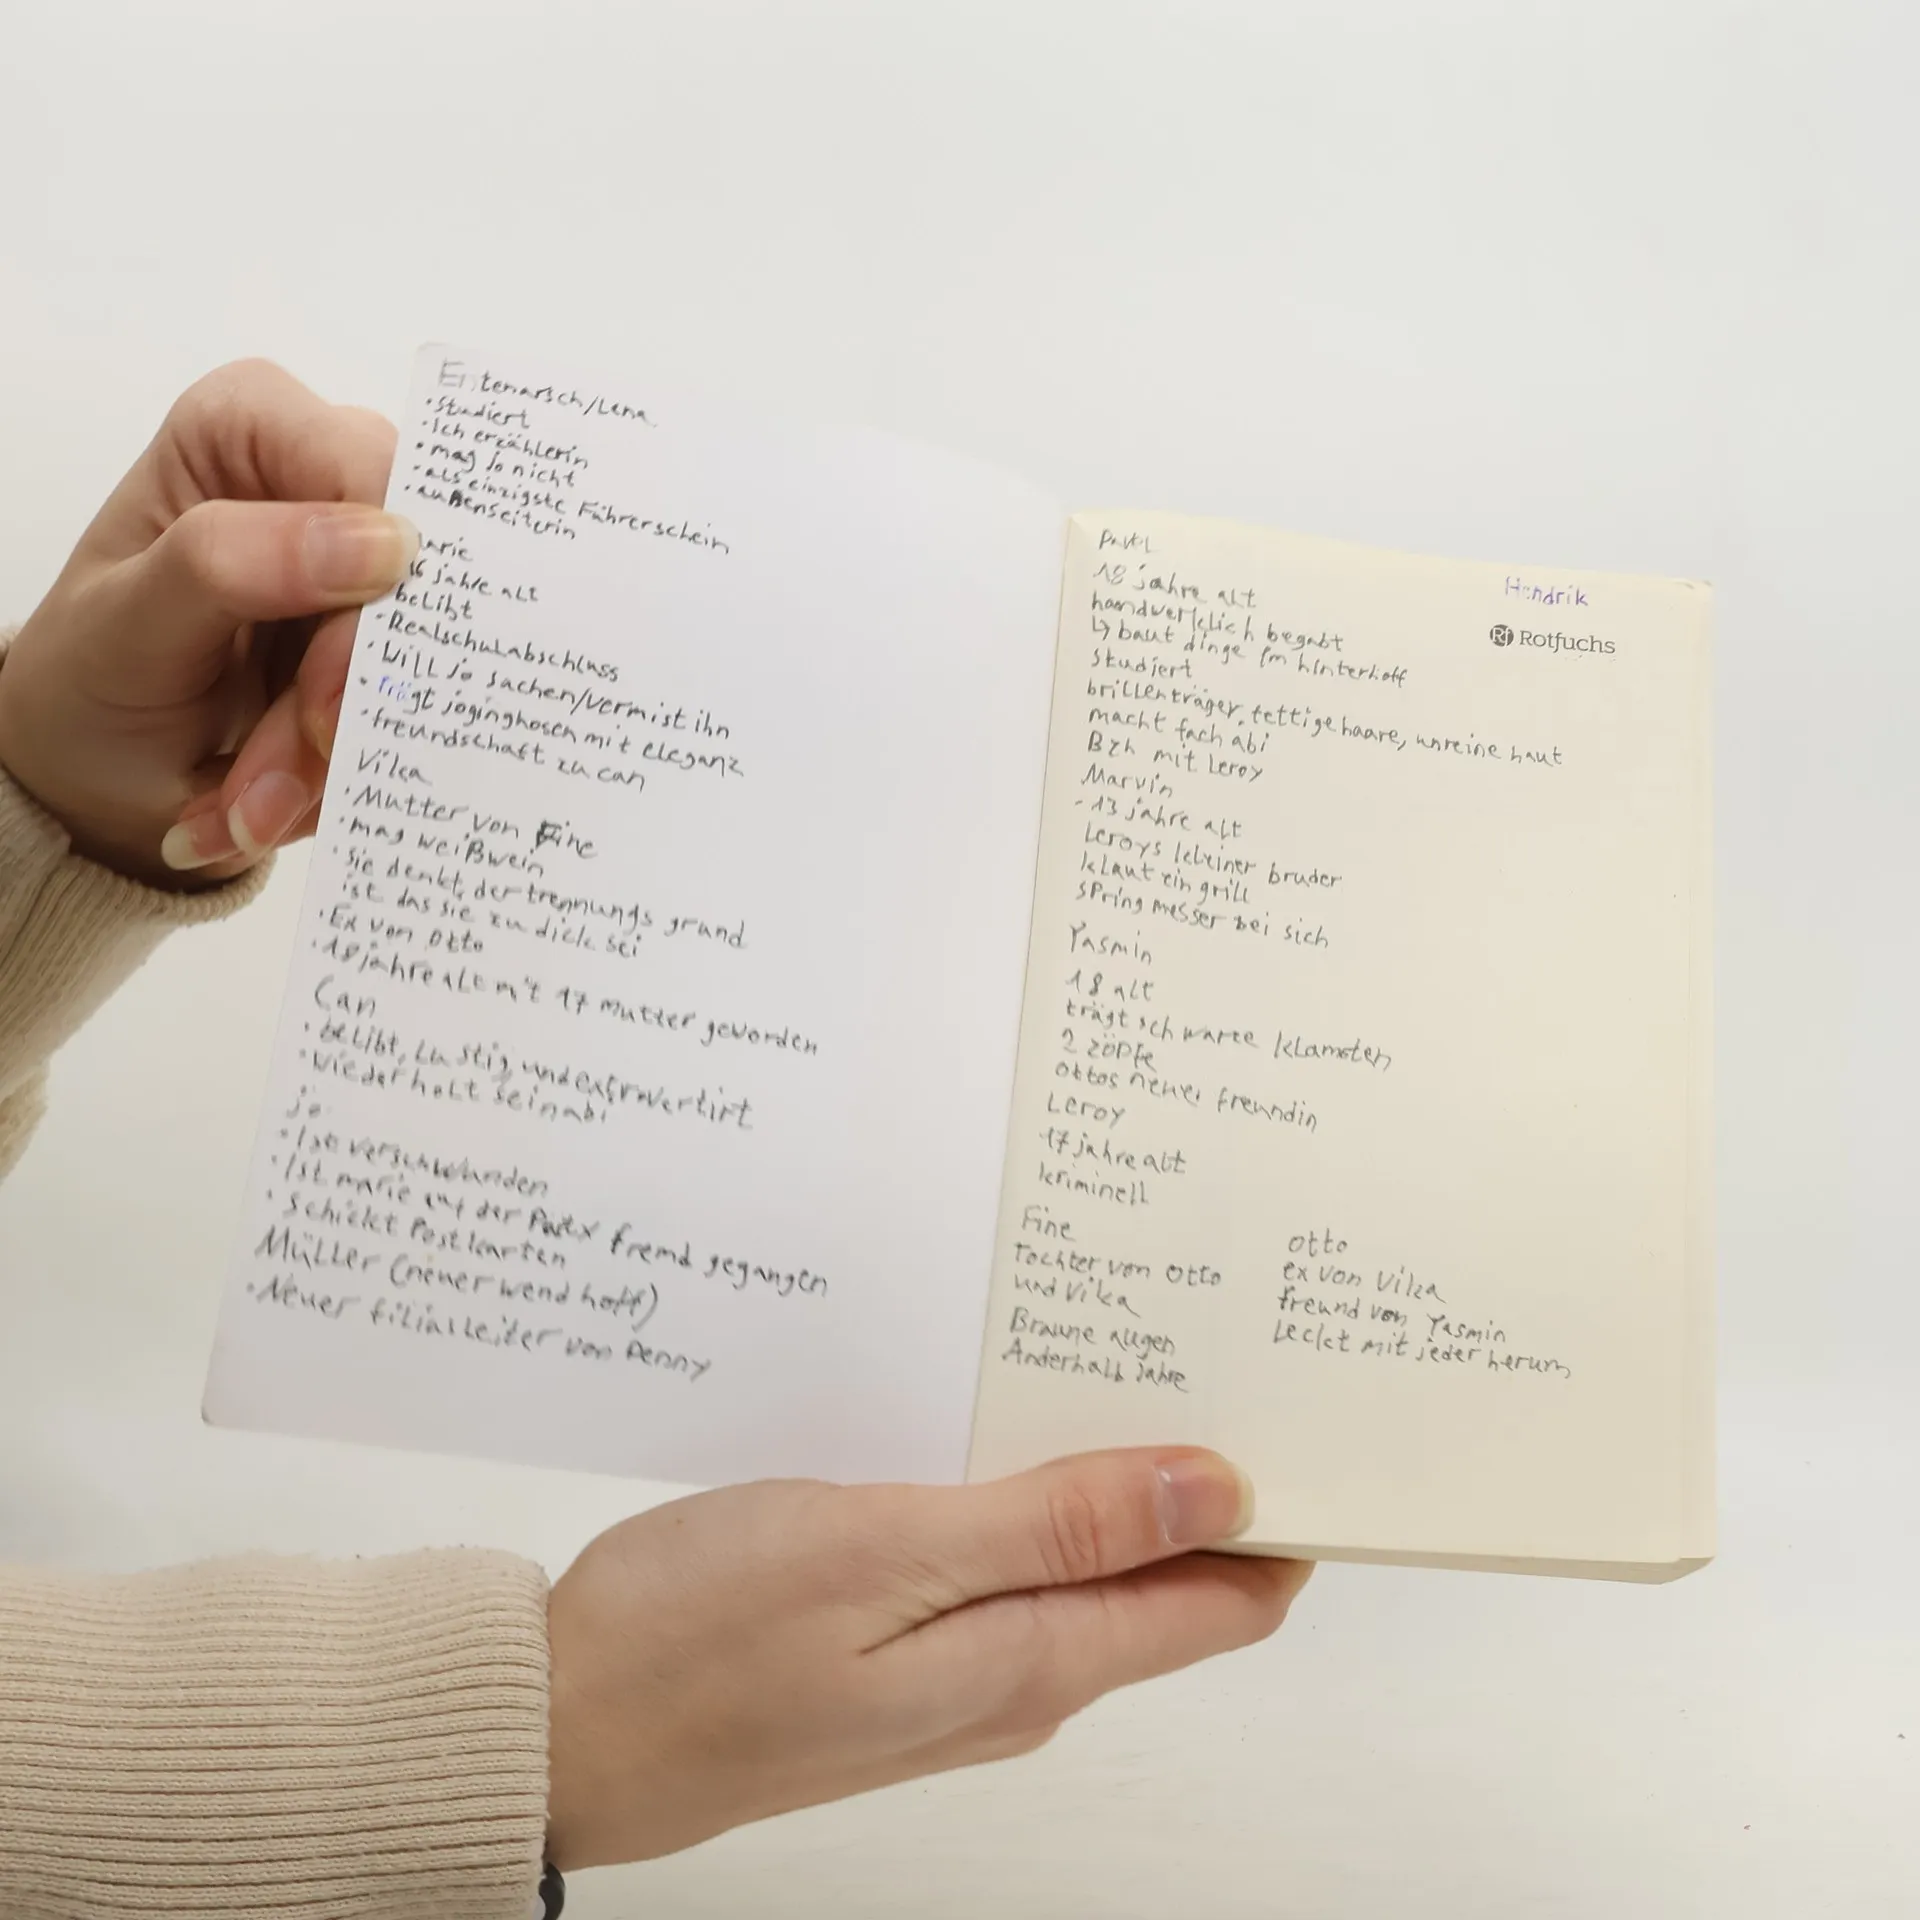 Entenarsch/Lena
• Studiert
• Ich erzählerin
• mag jo nicht
• als einzigste Führerschein
• außenseiterin
arie
16 jahre alt
beLibt
• Realschulabschluss
• Will jo suchen/vermist ihn
• Trägt joginghosen mit eleganz
• freundschaft zu can
Vika
• Mutter von Fine
• mag weißwein
• Sie denkt, der trennungs grund
ist das sie zu dick sei
• Ex von Otto
• 18 jahre alt mit 17 mutter geworden
Can
• beLibt, Lustig und extrovertirt
• wiederholt sein abi
jo
• Ist verschwunden
• Ist marie auf der Party fremd gegangen
• Schickt Postkarten
Müller (neuer wendhoff)
• Neuer filialleiter von Penny
Pavel
18 jahre alt
handwerklich begabt
↳ baut dinge im hinterhoff
Studiert
brillenträger, fettige haare, unreine haut
macht fach abi
Bzh mit Leroy
Marvin
- 13 jahre alt
Leroys kleiner bruder
klaut ein grill
springmesser bei sich
Yasmin
18 alt
trägt schwarze klamoten
2 zöpfe
ottos neue freundin
Leroy
17 jahre alt
kriminell
Fine
Tochter von Otto
und Vika
Braune augen
Anderhalb Jahre
Otto
ex von Vika
freund von Yasmin
Leckt mit jeder herum
Hendrik
Rf Rotfuchs